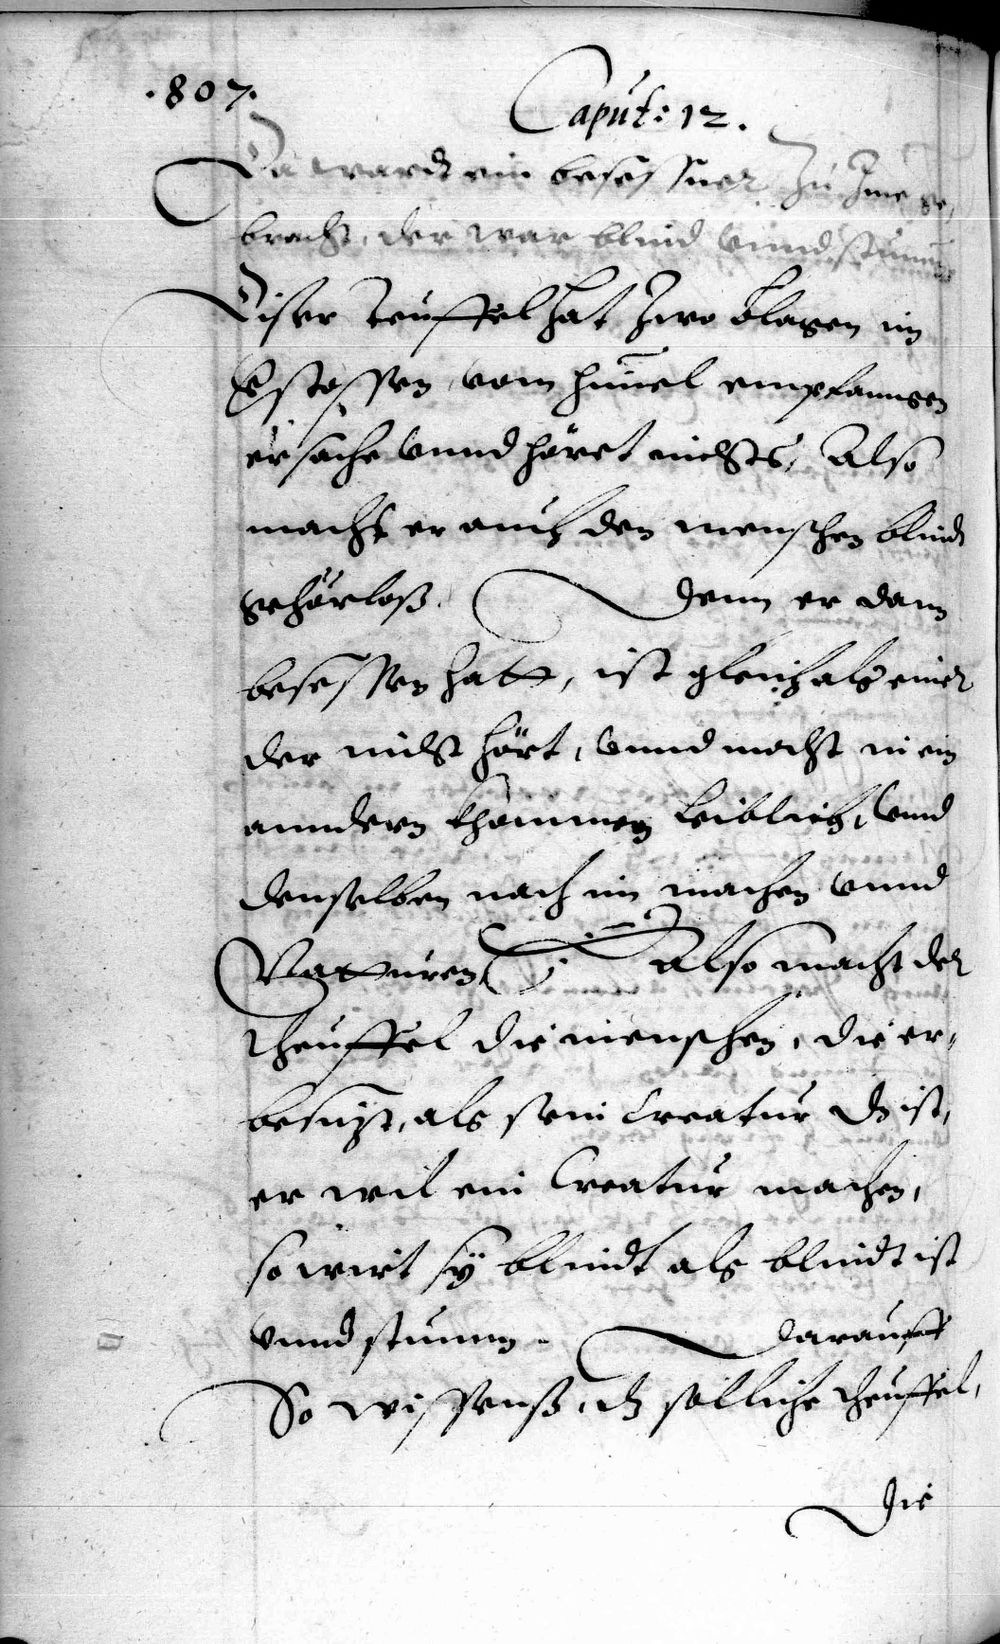 .807.
Caput: 12.
Da wardt ein besessner zu Jme ge,
bracht, der war blind vnnd stumm
Diser Teuffel hat zwo Plagen im
verstossen vom himel empfanngen
er sache vnnd höret nichts, Also
macht er auch den menschen blindt
gehörloß. Denn er dann
besessen hatt, ist gleich als einer
der nicht hört, vnnd macht in ein
anndern khommen leiblich, vnnd
denselben nach im machen vnnd
Natturen. Also macht der
theuffel die menschen, die er,
besitzt, als sein Creatur dz ist,
er wil ein Creatur machen,
so wirt sÿ blindt als blindt ist
vnnd stumm. Darauff
So wissenß, dz solliche theuffel,
Die